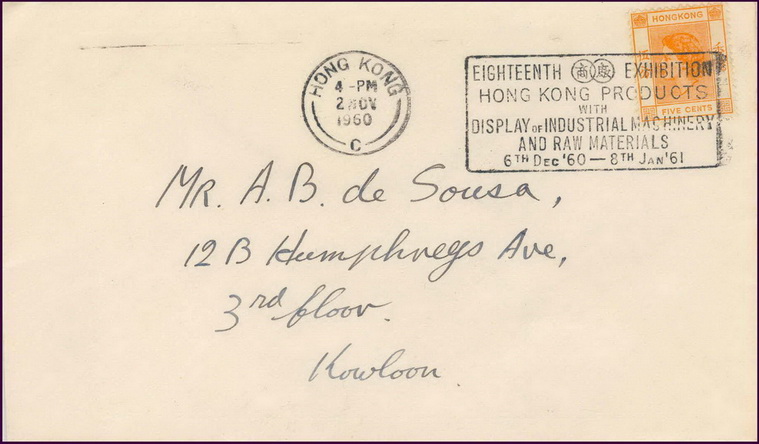 HONGKONG
FIVE CENTS
HONG KONG
4 - PM
2 NOV
1960
C
EIGHTEENTH 商 廠 EXHIBITION
HONG KONG PRODUCTS
WITH
DISPLAY OF INDUSTRIAL MACHINERY
AND RAW MATERIALS
6TH DEC '60 — 8TH JAN '61
Mr. A. B. de Sousa,
12 B Humphreys Ave,
3rd floor.
Kowloon.